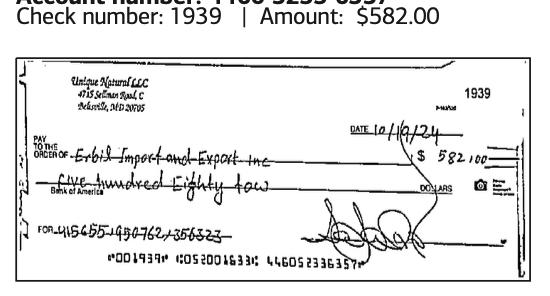 Check number: 1939 | Amount: $582.00
Unique Natural LLC
4715 Sellman Road, C
Beltsville, MD 20705
1939
DATE 10/19/24
PAY
TO THE
ORDER OF Erbil Import and Export Inc $ 582.00
five hundred Eighty tow DOLLARS
Bank of America
FOR 415455/950762/356323
⑈001939⑈ ⑆052001633⑆ 446052336357⑈